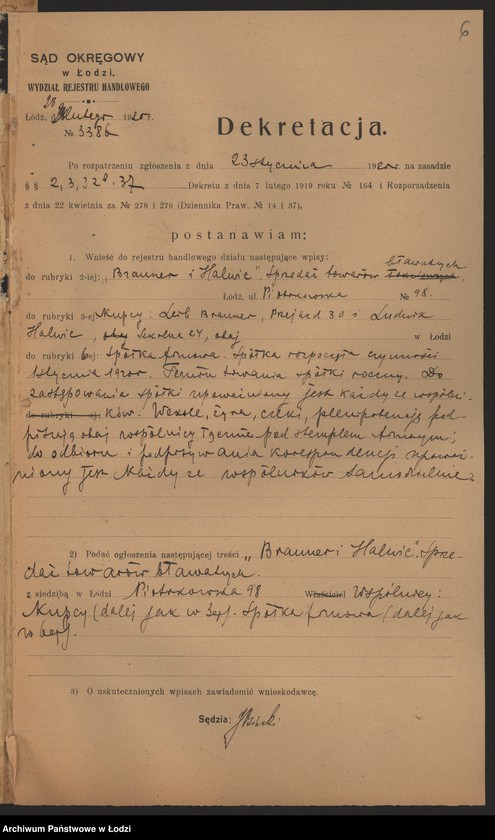 6
SĄD OKRĘGOWY
w Łodzi,
WYDZIAŁ REJESTRU HANDLOWEGO
Łódź, d. 28 lutego 1920 r.
№ 3386
Dekretacja.
Po rozpatrzeniu zgłoszenia z dnia 23 stycznia 1920 r. na zasadzie
§ § 2, 3, 32 37 Dekretu z dnia 7 lutego 1919 roku № 164 i Rozporządzenia
z dnia 22 kwietnia za № 278 i 279 (Dziennika Praw. № 14 i 37),
postanawiam:
1. Wnieść do rejestru handlowego działu następujące wpisy:
bławatnych
do rubryki 2-iej: „Brauner i Halwic". Sprzedaż towarów
Łódź, ul. Piotrkowska № 98.
do rubryki 3-ej Kupcy: Lerb Brauner, Przejazd 30 i Ludwik
Halwic, Szkolna 24, obaj w Łodzi
do rubryki 6ej: Spółka firmowa. Spółka rozpoczęła czynności
1 stycznia 1920 r. Termin trwania spółki roczny. Do
zastępowania spółki upoważniony jest każdy ze wspólni-
do rubryki ej: ków. Weksle, żyra, czeki, plenipotencje pod-
pisują obaj wspólnicy łącznie pod stemplem firmowym;
do odbioru i podpisywania korespondencji upoważ-
niony jest każdy ze wspólników samodzielnie.
2) Podać ogłoszenia następującej treści „Brauner i Halwic". Sprze-
daż towarów bławatnych.
z siedzibą w Łodzi Piotrkowska 98 Właściciel Wspólnicy:
Kupcy (dalej jak w 3ej). Spółka firmowa (dalej jak
w 6ej).
3) O uskutecznionych wpisach zawiadomić wnioskodawcę.
Sędzia:
Archiwum Państwowe w Łodzi